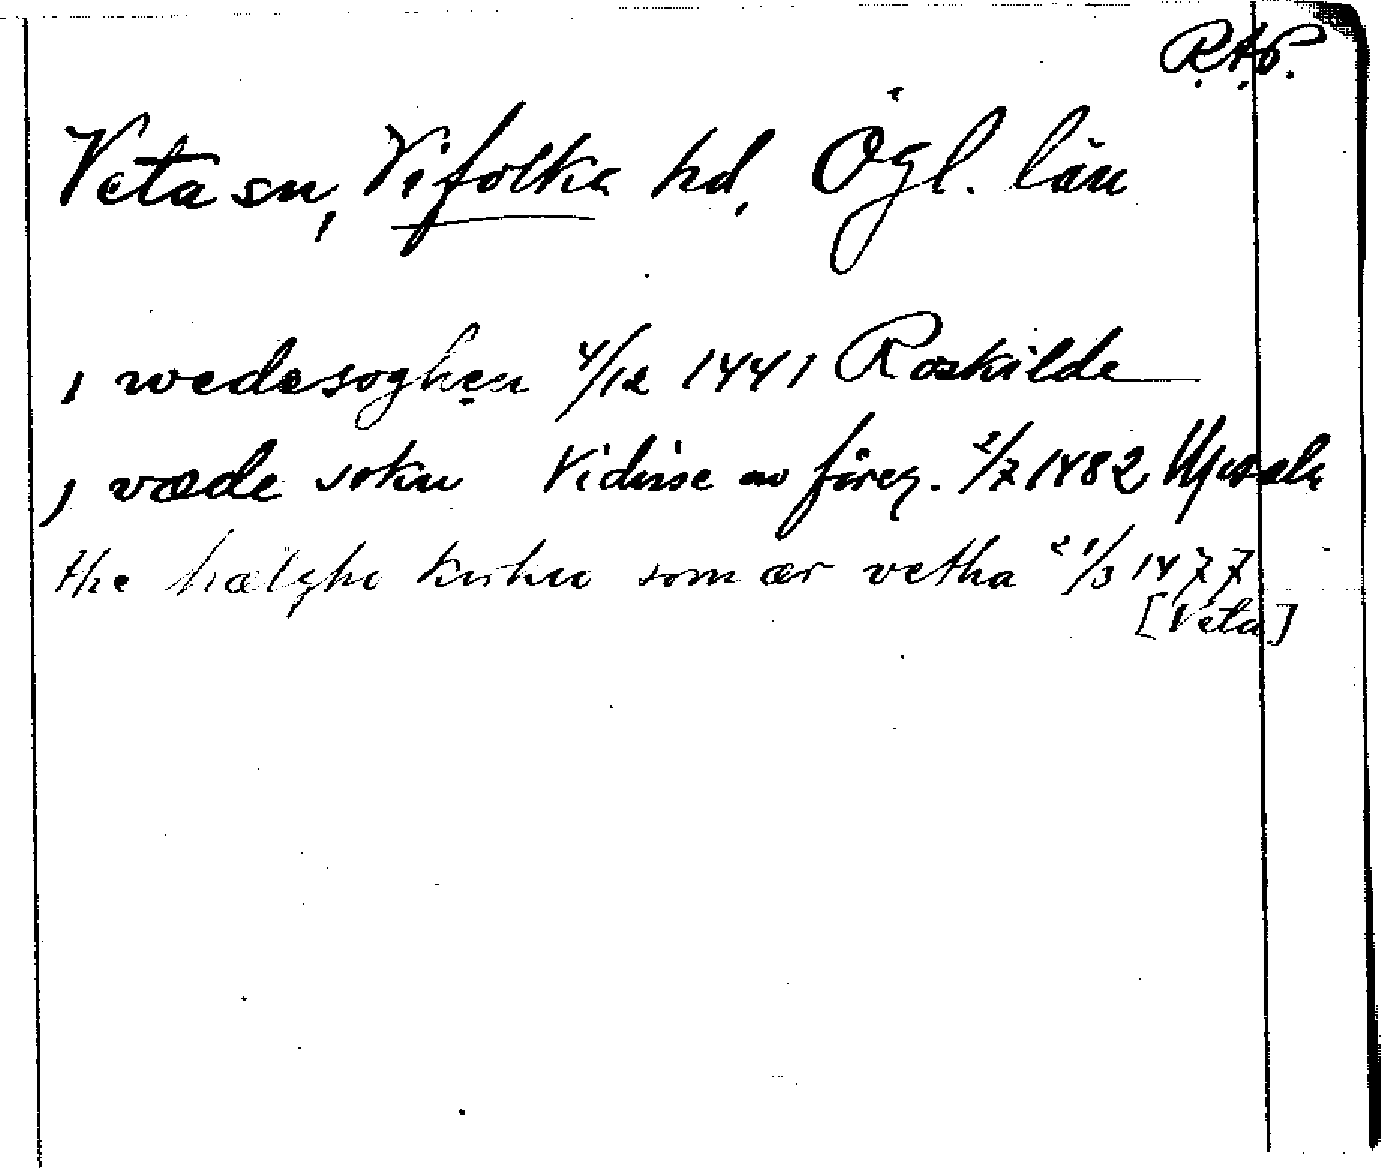 R.A.P.
Veta sn, Vifolka hd, Ögl. län
i wedesoghen 4/12 1441 Roskilde
i væde sokn Vidisse av föreg. 2/7 1482 Upsala
the hælghe kirkio som ær vetha 21/3 1477
[Veta]